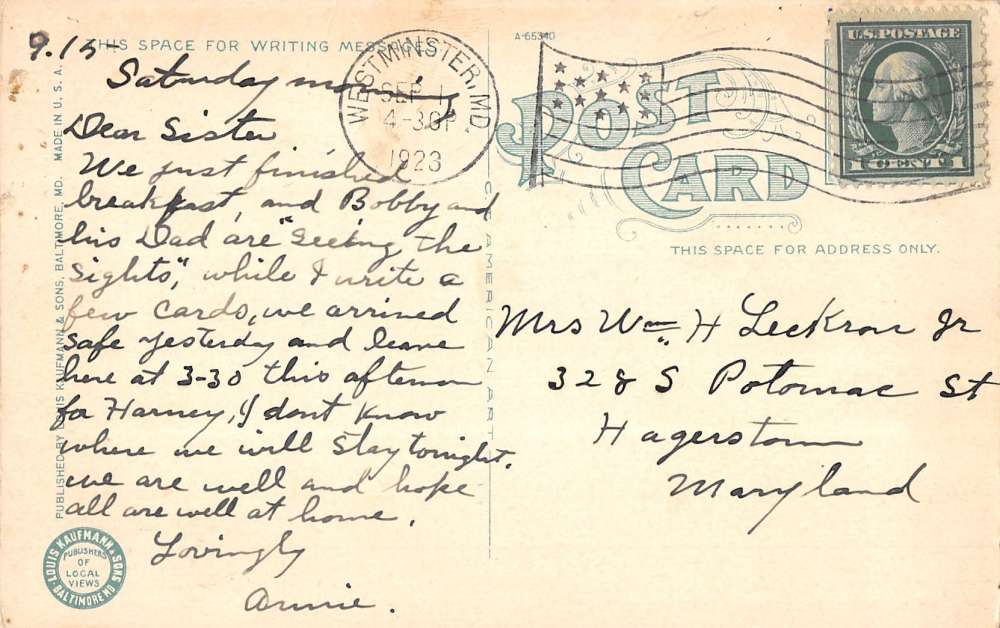 9.15-
THIS SPACE FOR WRITING MESSAGES
Saturday morning
Dear Sister
We just finished
breakfast, and Bobby and
his Dad are "Seeing the
Sights", while I write a
few cards, we arrived
safe yesterday and leave
here at 3-30 this afternoon
for Harney, I dont know
where we will stay tonight.
we are well and hope
all are well at home.
Lovingly
Annie.
PUBLISHED BY LOUIS KAUFMANN & SONS, BALTIMORE, MD. MADE IN U.S.A.
LOUIS KAUFMANN & SONS
PUBLISHERS
OF
LOCAL
VIEWS
BALTIMORE MD
C.T. AMERICAN ART
A-65340
WESTMINSTER, MD.
SEP 1
4-30P
1923
POST
CARD
U.S. POSTAGE
1 CENT 1
THIS SPACE FOR ADDRESS ONLY.
Mrs Wm H Leckron Jr
328 S Potomac St
Hagerstown
Maryland